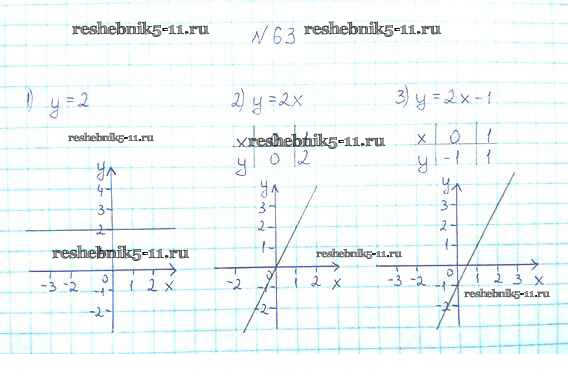 reshebnik5-11.ru №63 reshebnik5-11.ru
1) y=2 2) y=2x 3) y=2x-1
reshebnik5-11.ru reshebnik5-11.ru
x 1 x 0 1
y 0 2 y -1 1
y y y
4
3 3 3
2 2 2
1 1
reshebnik5-11.ru reshebnik5-11.ru
-3 -2 0 1 2 x -2 1 2 x -3 -2 0 1 2 3 x
-1 -1 -1 reshebnik5-11.ru
-2 -2 -2